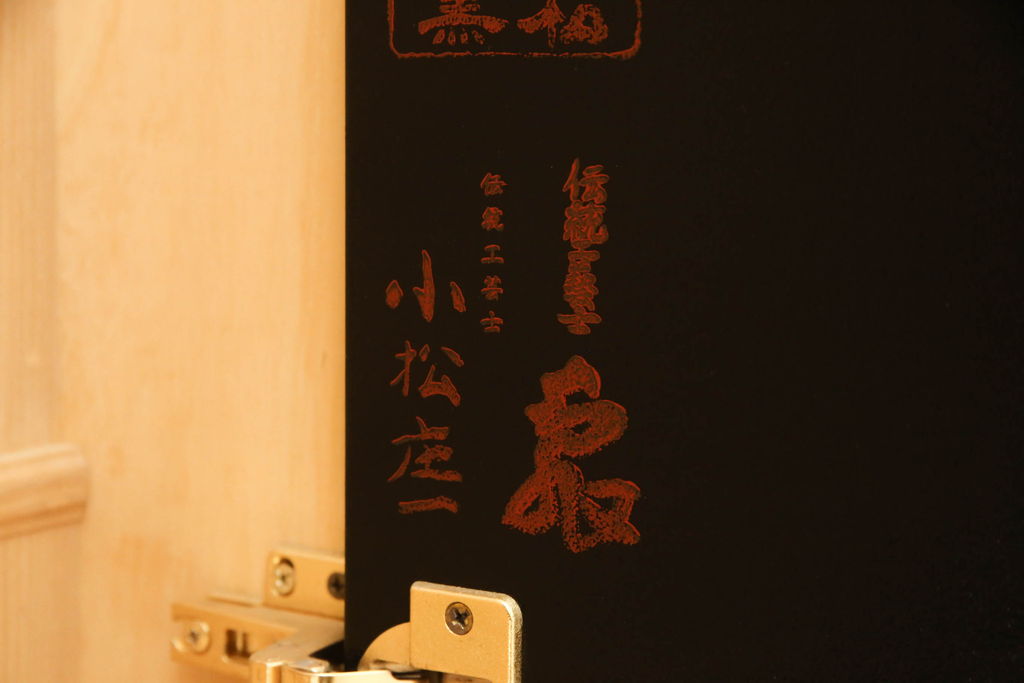 伝統工芸士
泉
伝統工芸士
小松庄一